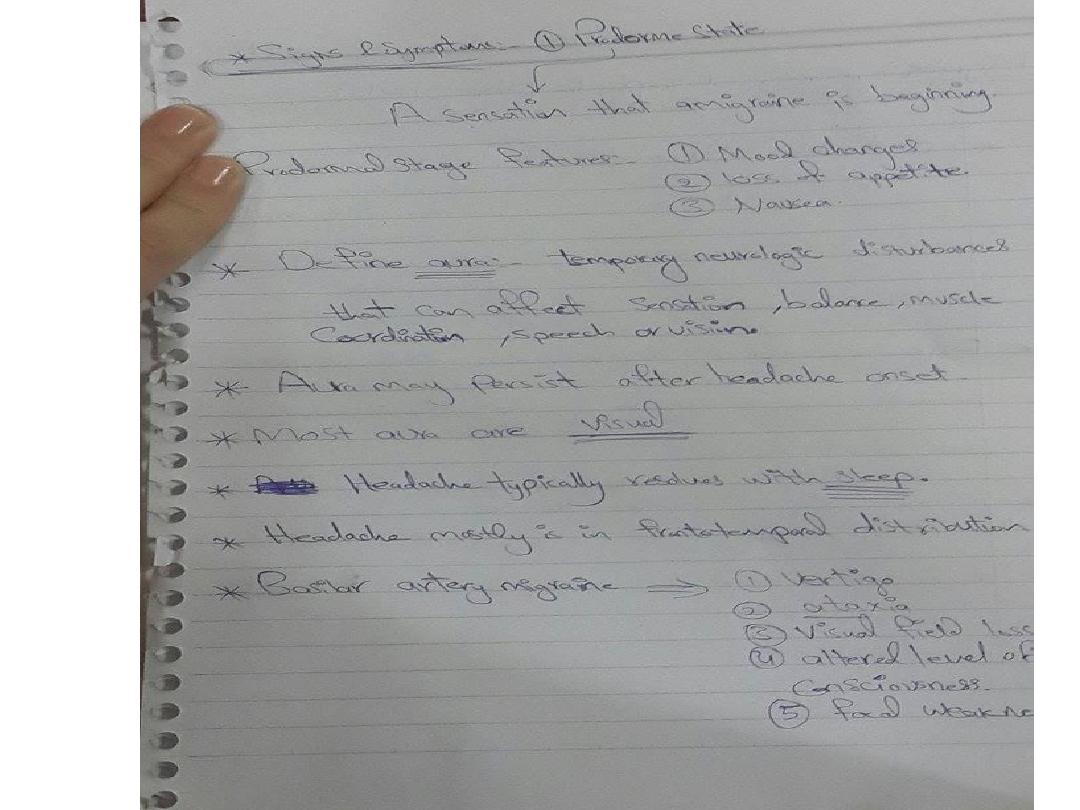 * Signs & Symptoms:- ① Proderme State
↓
A sensation that a migraine is beginning.
Prodormal stage features:- ① Mood changes
② loss of appetite.
③ Nausea.
* Define aura:- temporary neurologic disturbances
that can affect sensation, balance, muscle
Coordination, speech or vision.
* Aura may Persist after headache onset.
* Most aura are visual
* Headache typically resolves with sleep.
* Headache mostly is in frontotemporal distribution
* Basilar artery migraine ⇒ ① vertigo
② ataxia
③ Visual field loss
④ altered level of
Consciousness.
⑤ focal weakne